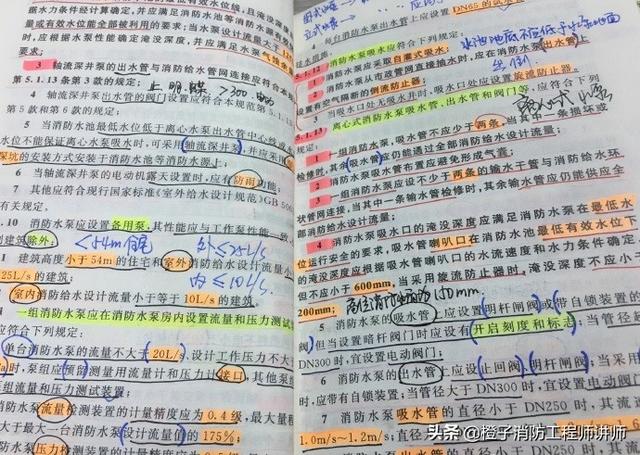 水力条件经计算确定,并应满足消防水池等消防水源
量或有效水位能全部被利用的要求;当水泵设计流量大于
时,应根据水泵性能确定淹没深度,并应满足水泵
要求;
3 轴流深井泵的出水管与消防给水管网连接应符合本规
第5.1.13条第3款的规定;
4 轴流深井泵出水管的阀门设置应符合本规范第5.1.
第5款和第6款的规定;
5 当消防水池最低水位低于离心水泵出水管中心线或
水位不能保证离心水泵吸水时,可采用轴流深井泵,并应采用
深坑的安装方式安装于消防水池等消防水源上;
6 当轴流深井泵的电动机露天设置时,应有防雨功能;
7 其他应符合现行国家标准《室外给水设计规范》GB 500
10 消防水泵应设置备用泵,其性能应与工作泵性能一致,
列建筑除外:
<54m住宅
外≤25L/s
内≤10L/s
1 建筑高度小于54m的住宅和室外消防给水设计流量
25L/s的建筑;
室内消防给水设计流量小于等于10L/s的建筑。
一组消防水泵应在消防水泵房内设置流量和压力测试
应符合下列规定:
单台消防水泵的流量不大于20L/s、设计工作压力不大
时,泵组应预留测量用流量计和压力计接口,其他泵
泵组流量和压力测试装置;
消防水泵流量检测装置的计量精度应为0.4级,最大量程
大于最大一台消防水泵设计流量值的175%;
消防水泵压力检测装置的计量精度应为0.5级
4 每台消防水泵出水管上应设置DN65的试水
水池池底不应低于
5.1.12 消防水泵吸水应符合下列规定:
1 消防水泵应采取自灌式吸水;
2 消防水泵从市政管网直接抽水时,应在消防水泵出水管上
设置有空气隔断的倒流防止器;
3 当吸水口处无吸水井时,吸水口处应设置旋流防止器。
5.1.13 离心式消防水泵吸水管、出水管和阀门等,应符合下列
规定:
1 一组消防水泵,吸水管不应少于两条,当其中一条损坏或
检修时,其余吸水管应仍能通过全部消防给水设计流量;
2 消防水泵吸水管布置应避免形成气囊;
3 一组消防水泵应设不少于两条的输水干管与消防给水环
状管网连接,当其中一条输水管检修时,其余输水管应仍能供应全
部消防给水设计流量;
4 消防水泵吸水口的淹没深度应满足消防水泵在最低水
位运行安全的要求,吸水管喇叭口在消防水池最低有效水位下
的淹没深度应根据吸水管喇叭口的水流速度和水力条件确定,
但不应小于600mm,当采用旋流防止器时,淹没深度不应小于
200mm;
5 消防水泵的吸水管上应设置明杆闸阀或带自锁装置的
阀,但当设置暗杆阀门时应设有开启刻度和标志;当管径超
DN300时,宜设置电动阀门;
6 消防水泵的出水管上应设止回阀、明杆闸阀;当采用
时,应带有自锁装置;当管径大于DN300时,宜设置电动阀门
7 消防水泵吸水管的直径小于DN250时,其流
1.0m/s~1.2m/s;直径
头条 @橙子消防工程师讲师